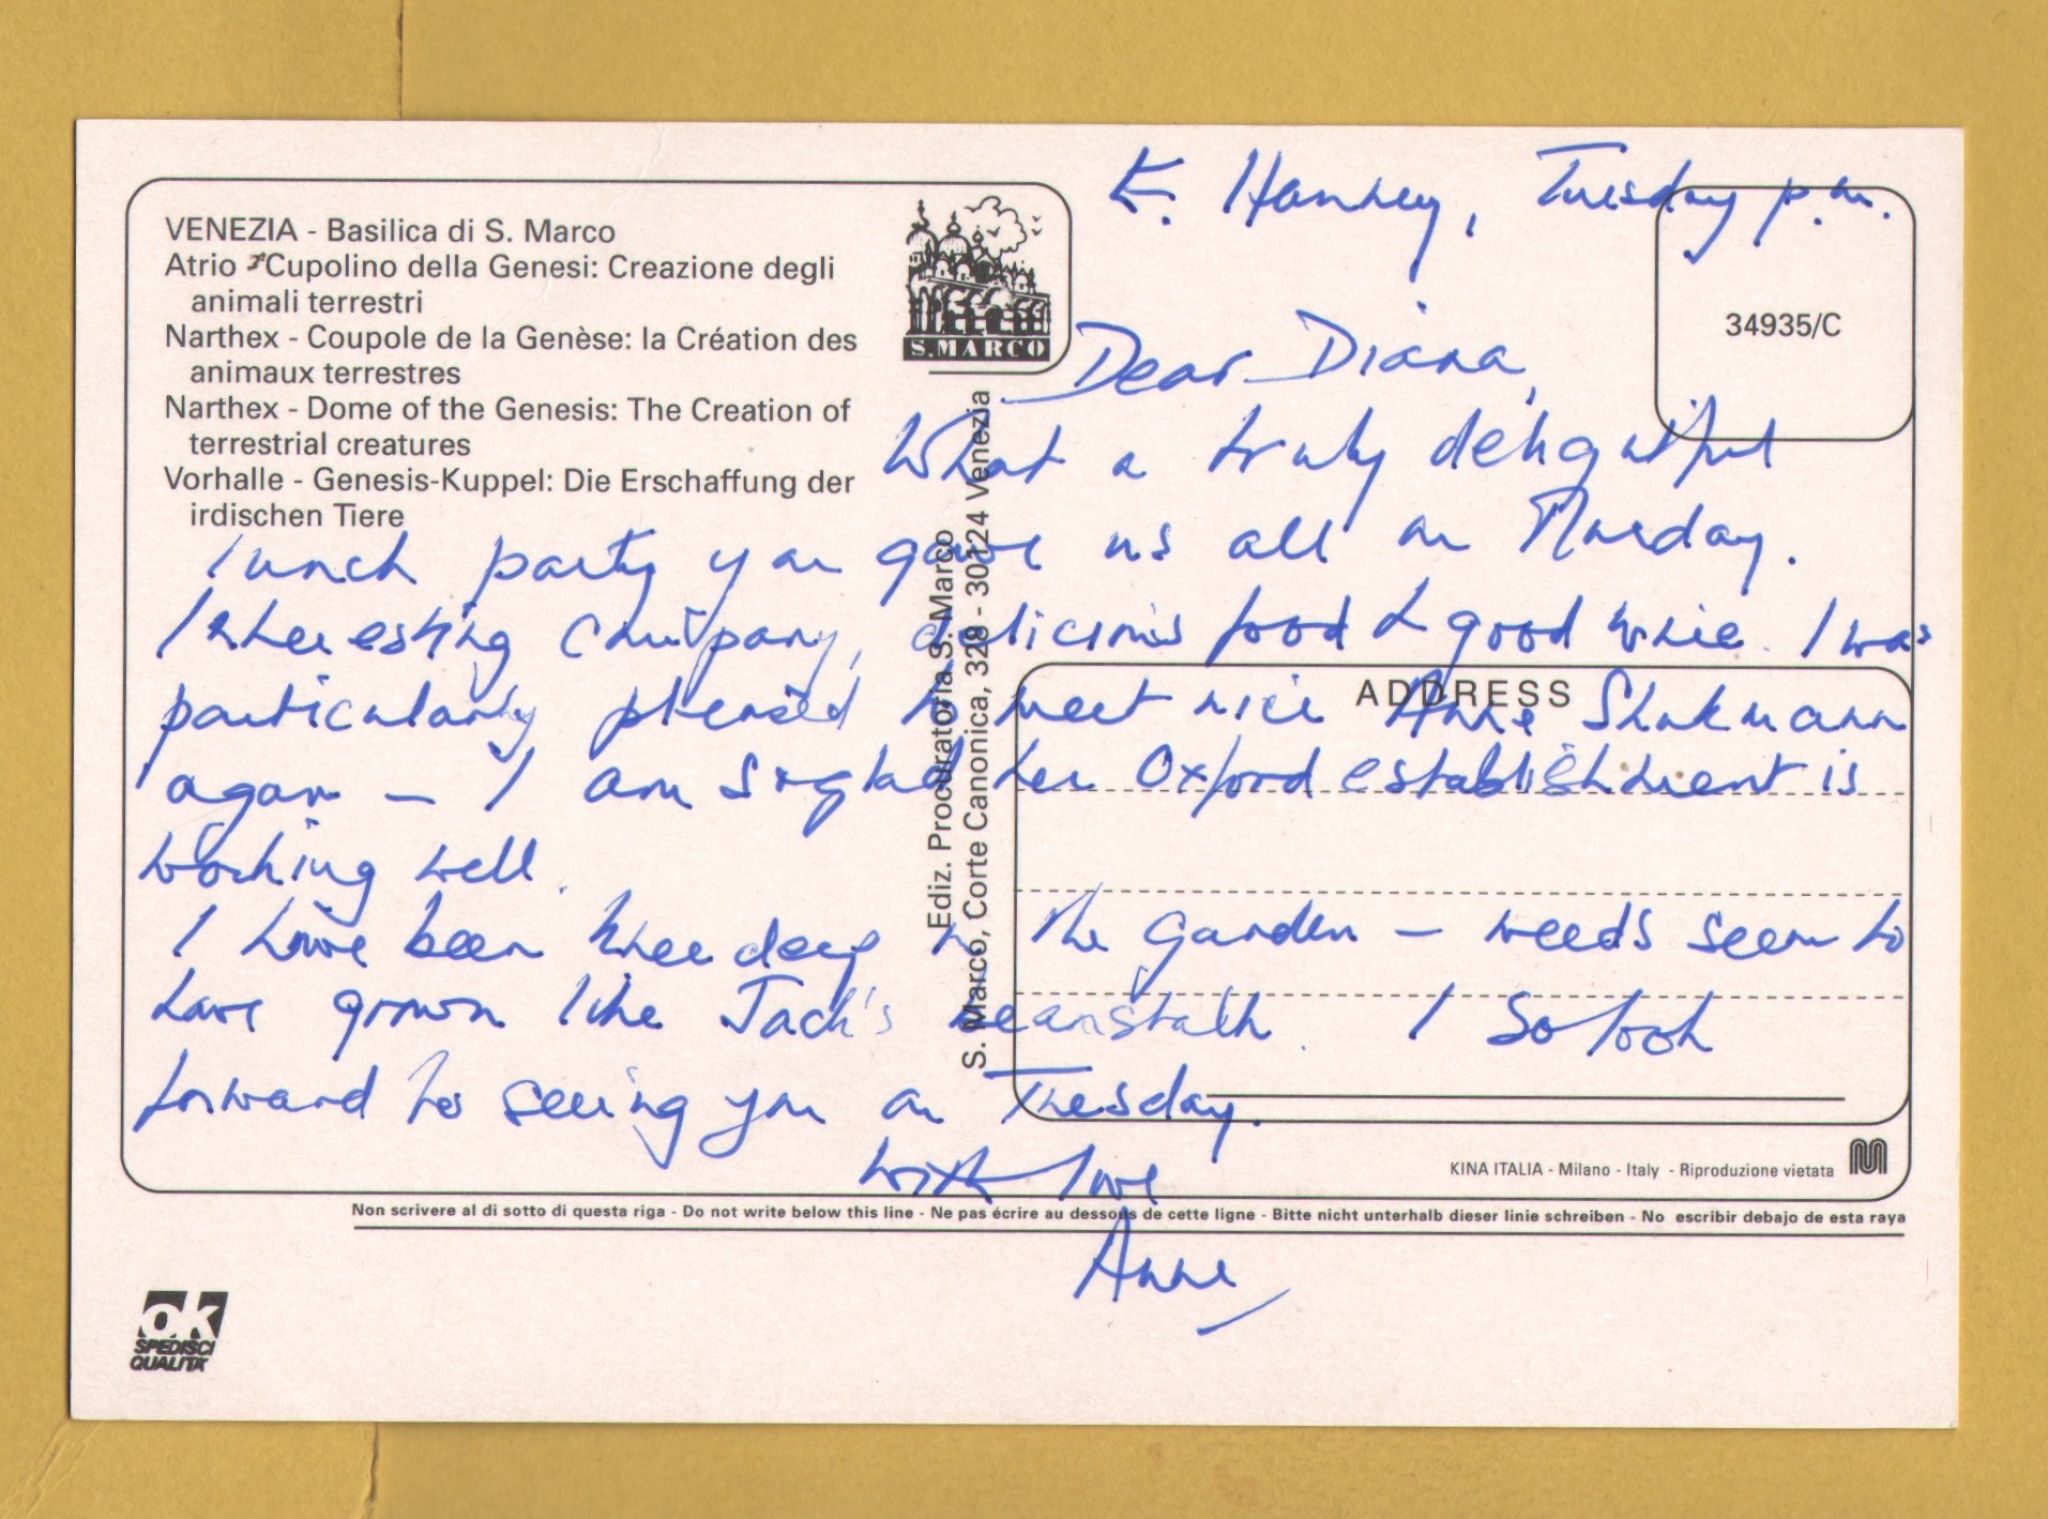 E. Hanney, Tuesday p.m.
VENEZIA - Basilica di S. Marco
Atrio - Cupolino della Genesi: Creazione degli
animali terrestri
Narthex - Coupole de la Genèse: la Création des
animaux terrestres
Narthex - Dome of the Genesis: The Creation of
terrestrial creatures
Vorhalle - Genesis-Kuppel: Die Erschaffung der
irdischen Tiere
S. MARCO
34935/C
Dear Diana,
What a truly delightful
lunch party you gave us all on
Interesting company, delicious food & good wine. I was
particularly pleased to meet nice Anne
again - I am so glad her Oxford establishment is
working well.
I have been knee deep in the garden - weeds seem to
have grown like Jack's beanstalk. I so look
forward to seeing you on Tuesday.
with love
Anne
Ediz. Procuratoria S. Marco
S. Marco, Corte Canonica, 328 - 30124 Venezia
ADDRESS
KINA ITALIA - Milano - Italy - Riproduzione vietata
Non scrivere al di sotto di questa riga - Do not write below this line - Ne pas écrire au dessous de cette ligne - Bitte nicht unterhalb dieser linie schreiben - No escribir debajo de esta raya
ok
SPEDISCI
QUALITA'